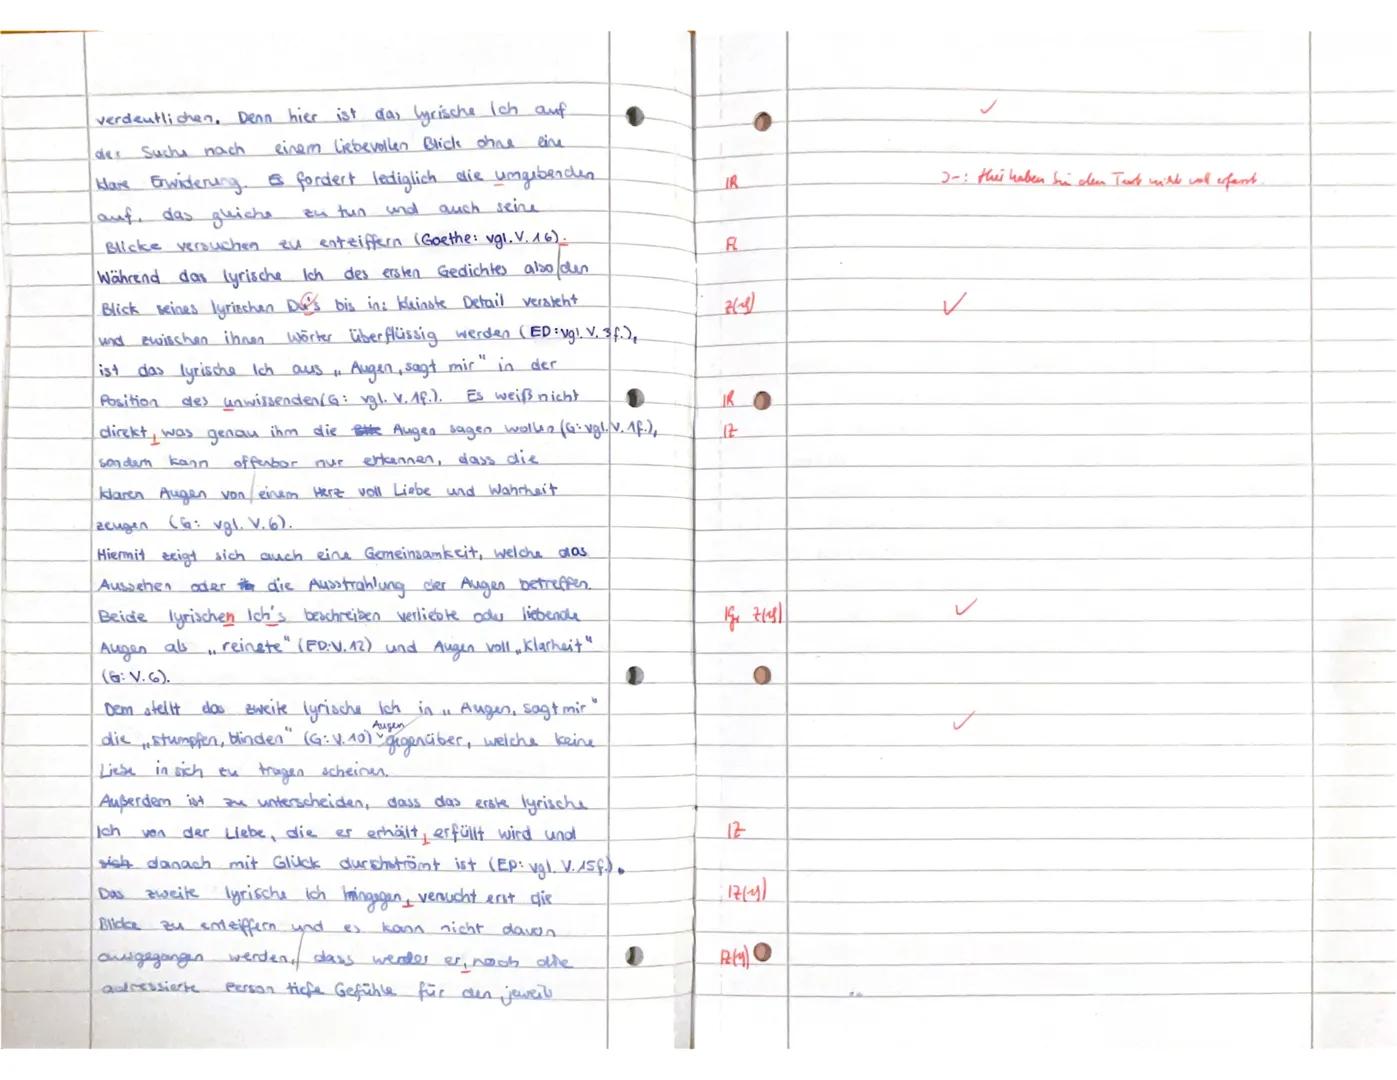 verdeutlichen. Denn hier ist das lyrische Ich auf
der Suche nach einem liebevollen Blick ohne eine
klare Erwiderung. Es fordert lediglich die umgebenden
IR
:- Hier haben Sie den Text nicht voll erfasst.
auf, das gleiche zu tun und auch seine
Blicke versuchen zu entziffern (Goethe: vgl. V. 16).
Während das lyrische Ich des ersten Gedichtes also den
Blick seines lyrischen Du's bis ins kleinste Detail versteht
Z(-g)
und zwischen ihnen Wörter überflüssig werden (ED: vgl. V. 3f.),
ist das lyrische Ich aus „Augen, sagt mir" in der
Position des unwissenden (G: vgl. V. 1f.). Es weiß nicht
IR
direkt, was genau ihm die Augen sagen wollen (G: vgl. V. 1f.),
IZ
sondern kann offenbar nur erkennen, dass die
klaren Augen von einem Herz voll Liebe und Wahrheit
zeugen (G: vgl. V. 6).
Hiermit zeigt sich auch eine Gemeinsamkeit, welche das
Aussehen oder die Ausstrahlung der Augen betreffen.
Beide lyrischen Ich's beschreiben verliebte oder liebende
Augen als „reinste" (ED: V. 12) und Augen voll „Klarheit"
(G: V. 6).
Dem stellt das zweite lyrische Ich in „Augen, sagt mir"
die „stumpfen, blinden" (G: V. 10) Augen gegenüber, welche keine
Liebe in sich zu tragen scheinen.
Außerdem ist zu unterscheiden, dass das erste lyrische
Ich von der Liebe, die er erhält, erfüllt wird und
IZ
danach mit Glück durchströmt ist (ED: vgl. V. 15f.).
Das zweite lyrische Ich hingegen, versucht erst die
IZ(-g)
Blicke zu entziffern und es kann nicht davon
ausgegangen werden, dass weder er, noch die
adressierte Person tiefe Gefühle für den jeweils